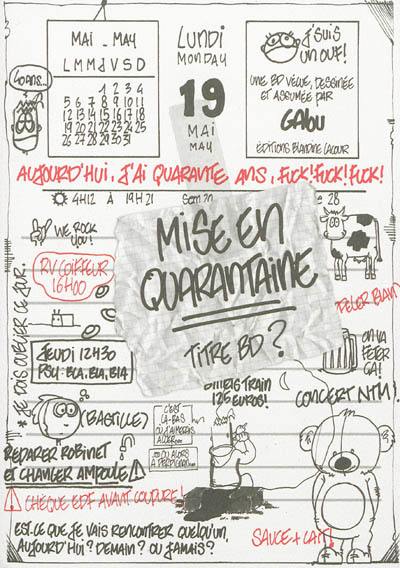 MAI - MAY
L M M J V S D
1 2 3 4
5 6 7 8 9 10 11
12 13 14 15 16 17 18
19 20 21 22 23 24 25
26 27 28 29 30 31
LUNDI
MONDAY
19
MAI
MAY
J'SUIS
UN OUF!
UNE BD VÉCUE, DESSINÉE
ET ASSUMÉE PAR
GALOU
ÉDITIONS BLANDINE LACOUR
40 ANS...
AUJOURD'HUI, J'AI QUARANTE ANS, FUCK! FUCK! FUCK!
4H12 À 19H21
28
WE ROCK
YOU!
MISE EN
QUARANTAINE
TITRE BD?
RV COIFFEUR
16H00
* JE DOIS ACHEVER CE JOUR.
JEUDI 12H30
PSY: BLA, BLA, BLA
ON VA
FÊTER
ÇA!
BILLETS TRAIN
125 EUROS!
CONCERT NTM!
(BASTILLE)
C'EST
LÀ-BAS
OÙ J'AIMERAIS
ALLER...
OU ALORS
À PERPIGNAN...
RÉPARER ROBINET
ET CHANGER AMPOULE
CHÈQUE EDF AVANT COUPURE!
EST-CE QUE JE VAIS RENCONTRER QUELQU'UN,
AUJOURD'HUI? DEMAIN? OU JAMAIS?